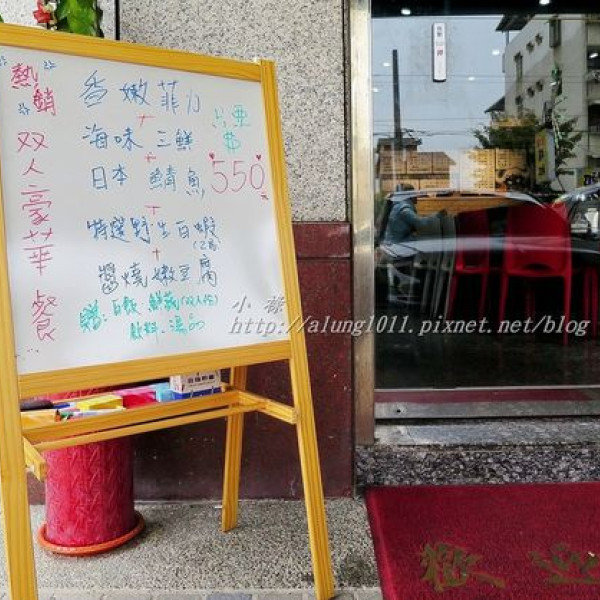 熱銷双人豪华餐
香嫩菲力
+
海味三鮮
+
日本鯖魚
+
特選野生白蝦
(2隻)
+
醬燒嫩豆腐
550元
贈:白飯.鮮蔬(双人份)
飲料.湯品
小祿
http://alung1011.pixnet.net/blog
歡迎